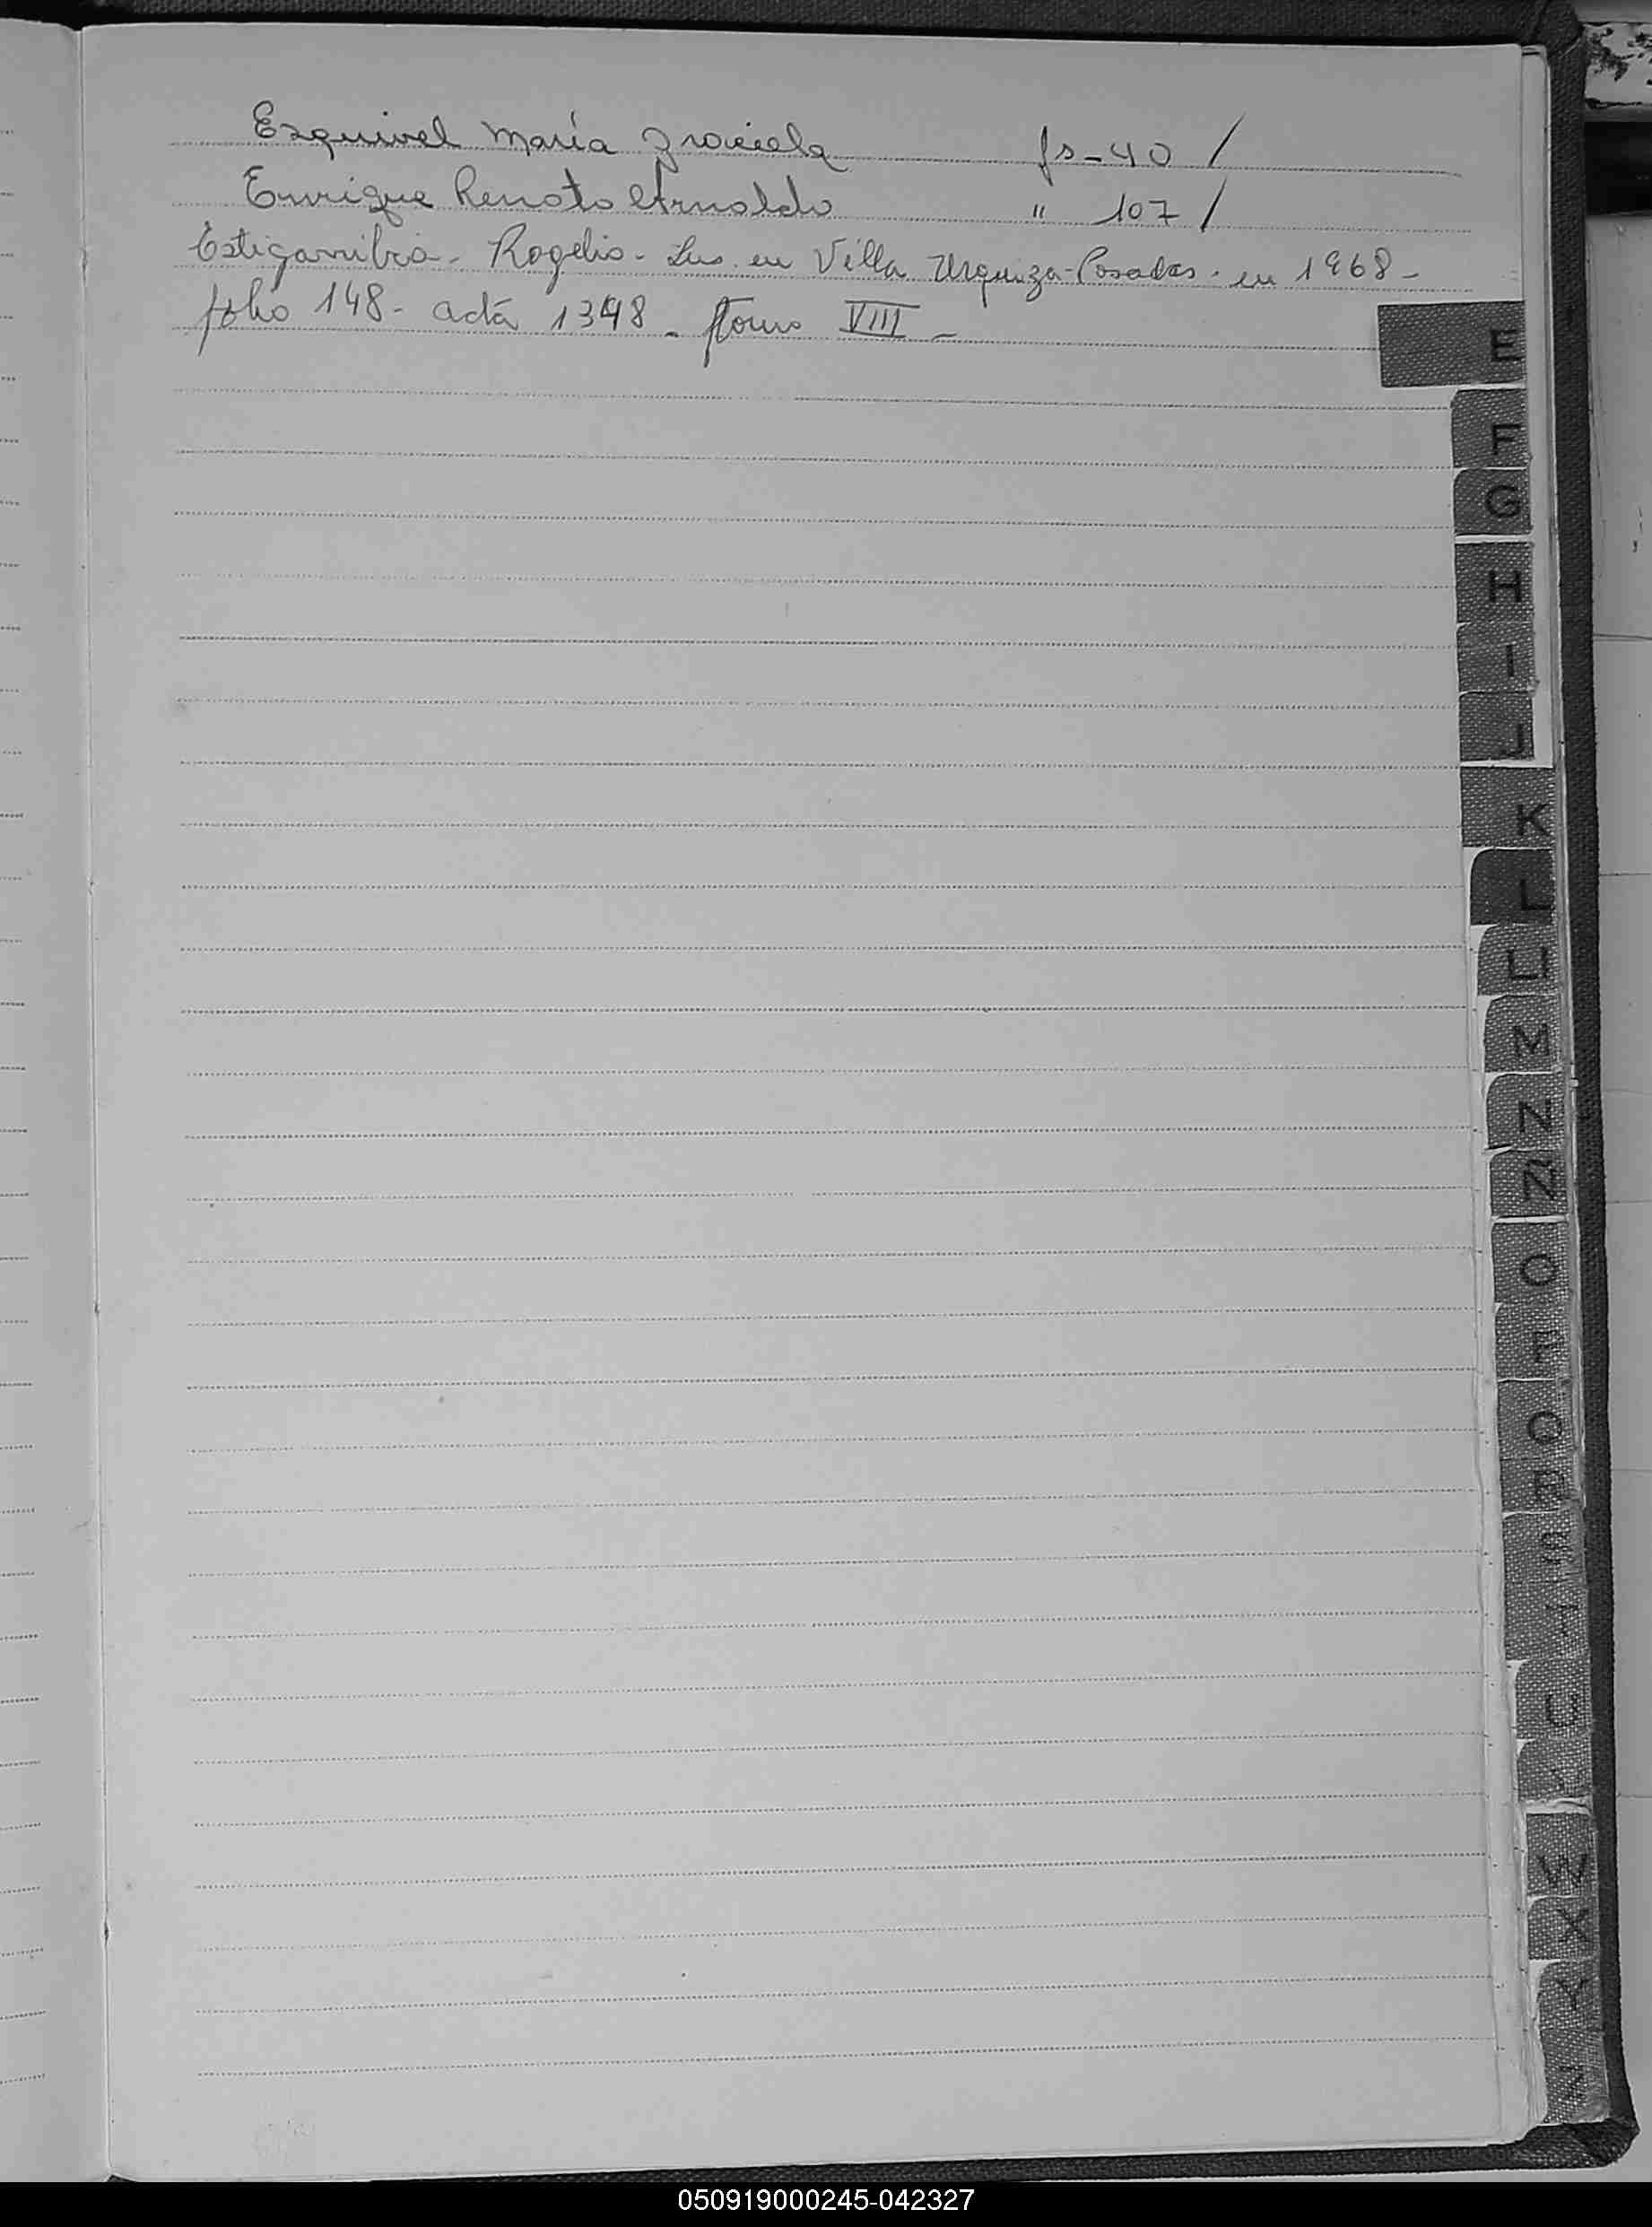 Esquivel María Graciela fs-40 /
Enrique Renato Arnoldo " 107 /
Estigarribia - Rogelio - Ins. en Villa Urquiza-Posadas. en 1968-
folio 148- acta 1348 - tomo VIII -
E
F
G
H
I
J
K
L
LL
M
N
Ñ
O
P
Q
R
S
T
U
V
W
X
Y
Z
050919000245-042327